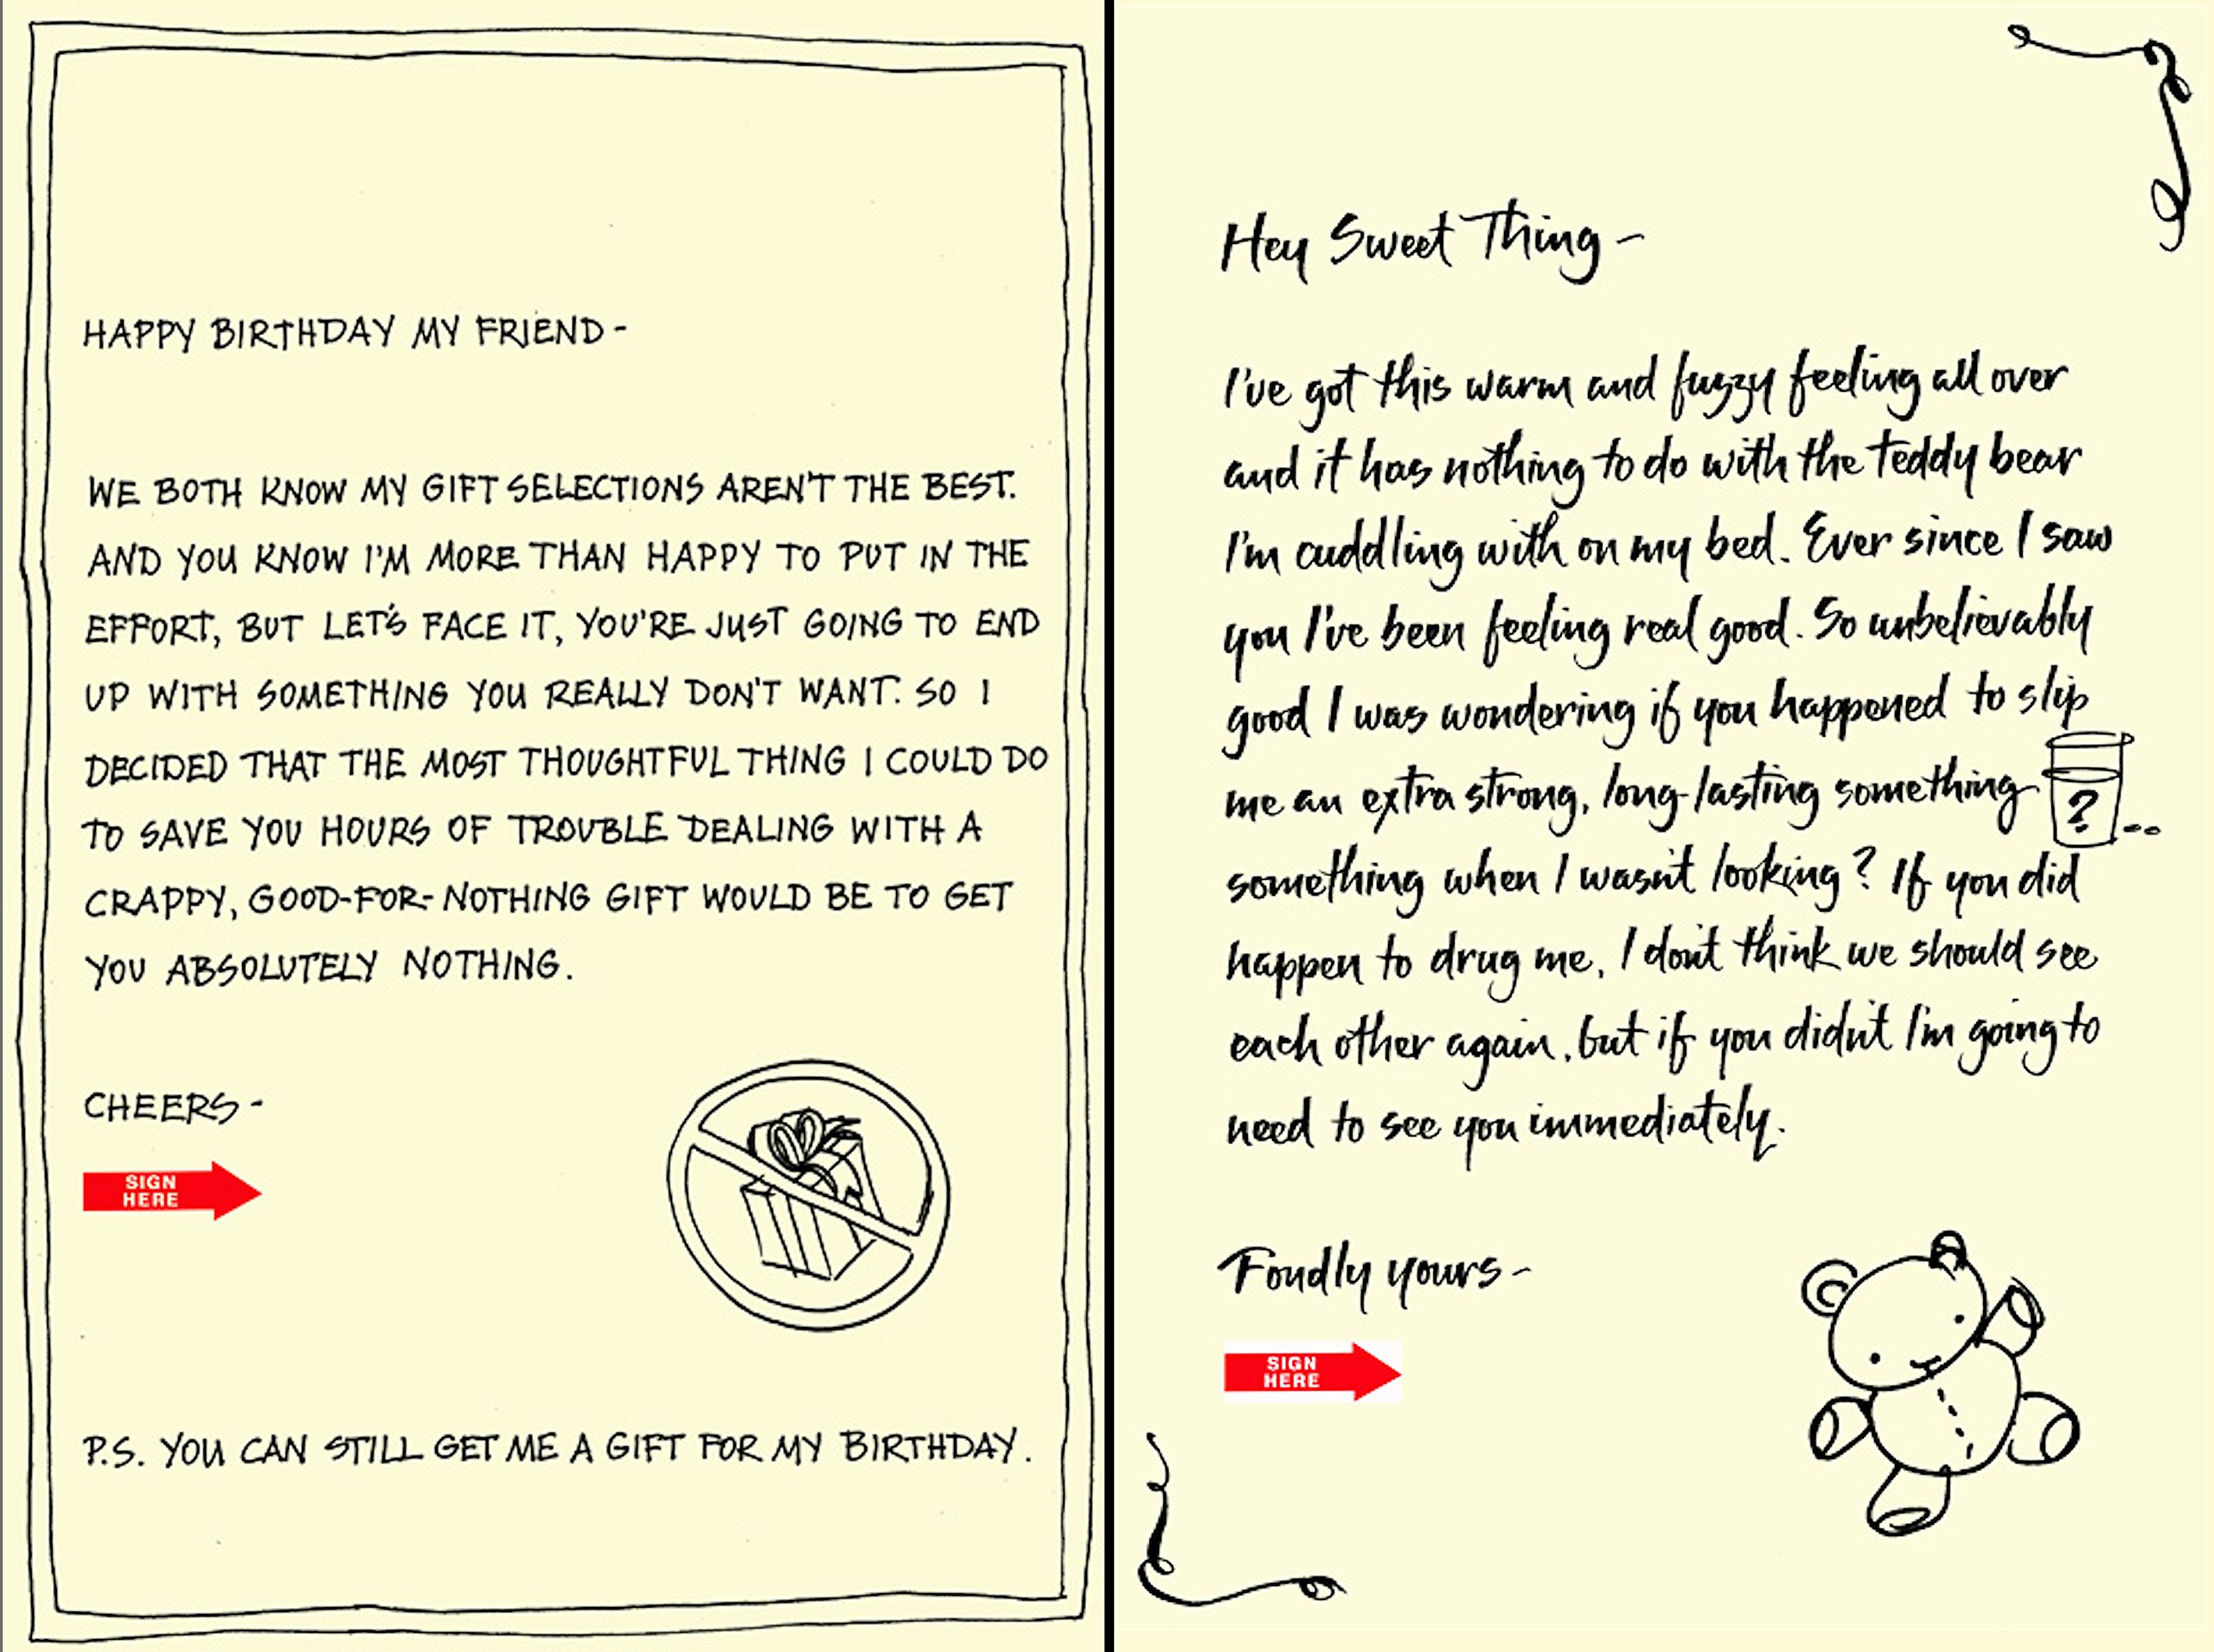 HAPPY BIRTHDAY MY FRIEND-
WE BOTH KNOW MY GIFT SELECTIONS AREN'T THE BEST.
AND YOU KNOW I'M MORE THAN HAPPY TO PUT IN THE
EFFORT, BUT LET'S FACE IT, YOU'RE JUST GOING TO END
UP WITH SOMETHING YOU REALLY DON'T WANT. SO I
DECIDED THAT THE MOST THOUGHTFUL THING I COULD DO
TO SAVE YOU HOURS OF TROUBLE DEALING WITH A
CRAPPY, GOOD-FOR-NOTHING GIFT WOULD BE TO GET
YOU ABSOLUTELY NOTHING.
CHEERS-
SIGN
HERE
P.S. YOU CAN STILL GET ME A GIFT FOR MY BIRTHDAY.
Hey Sweet Thing-
I've got this warm and fuzzy feeling all over
and it has nothing to do with the teddy bear
I'm cuddling with on my bed. Ever since I saw
you I've been feeling real good. So unbelievably
good I was wondering if you happened to slip
me an extra strong, long-lasting something
?
something when I wasn't looking? If you did
happen to drug me, I don't think we should see
each other again, but if you didn't I'm going to
need to see you immediately.
Fondly yours-
SIGN
HERE